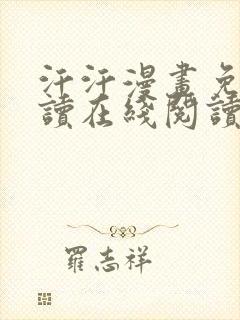 汗汗漫畫免
讀在綫閱讀
羅志祥